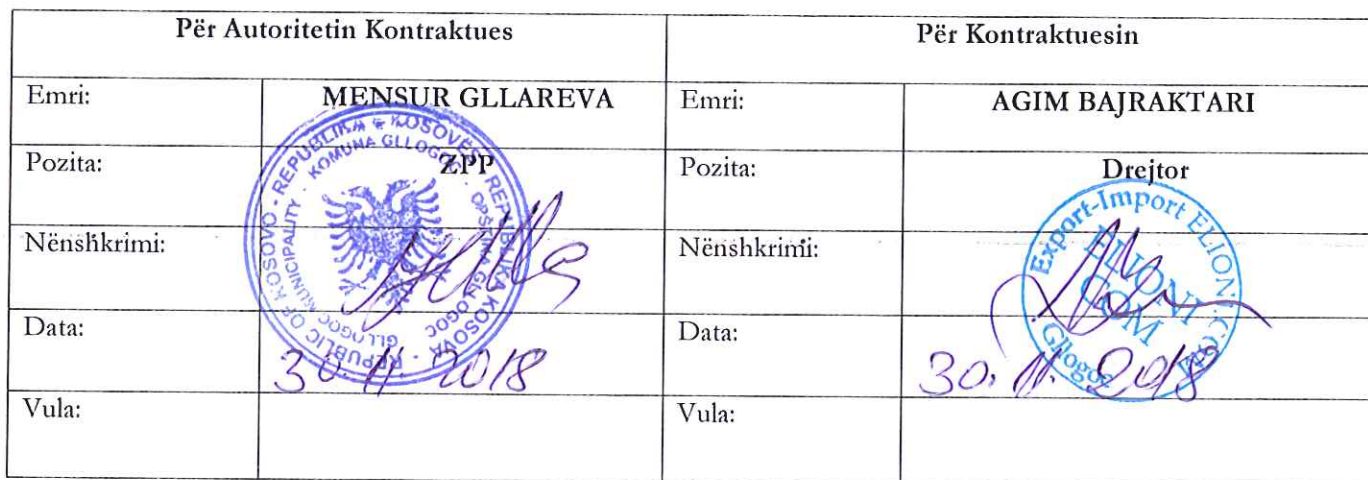 Për Autoritetin Kontraktues Për Kontraktuesin
Emri: MENSUR GLLAREVA Emri: AGIM BAJRAKTARI
Pozita: ZPP Pozita: Drejtor
Nënshkrimi: Nënshkrimi:
Data: 30.11.2018 Data: 30.11.2018
Vula: Vula:
REPUBLIKA E KOSOVËS - REPUBLIKA KOSOVA - REPUBLIC OF KOSOVO
KOMUNA GLLOGOC - OPŠTINA GLLOGOC - GLLOGOC MUNICIPALITY
Export-Import ELIONI
ELIONI
COM
Gllogoc